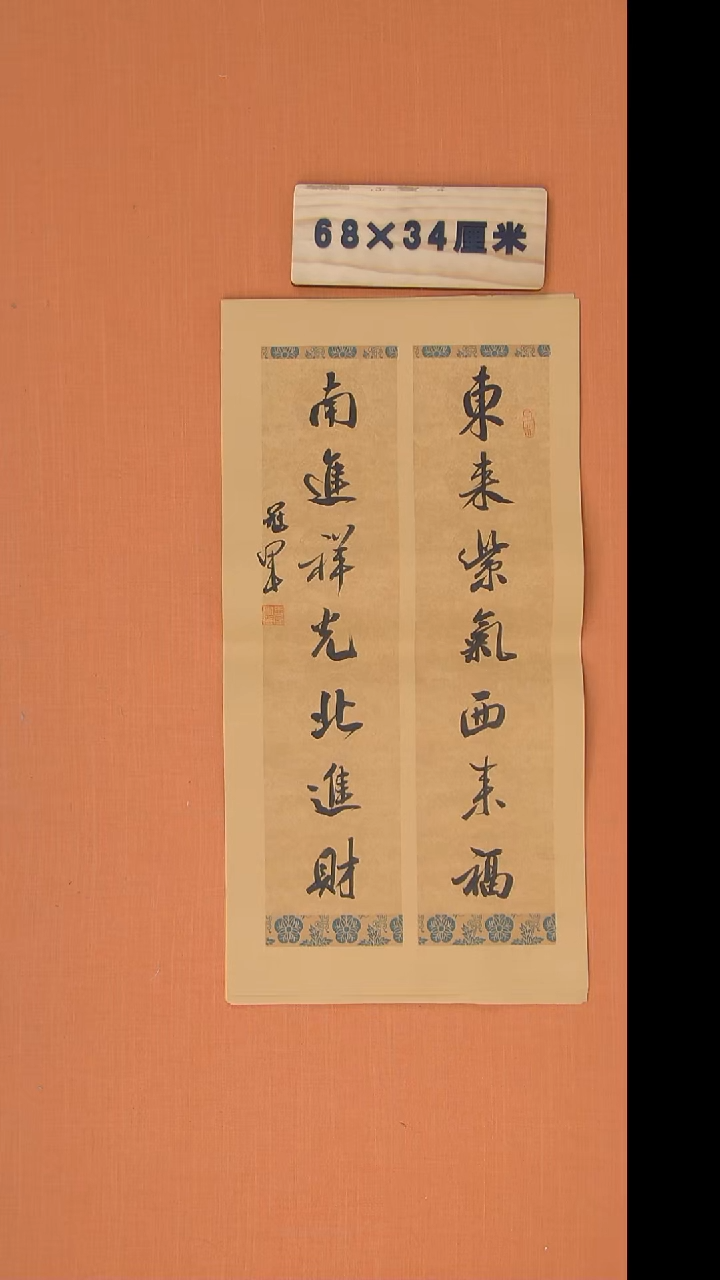 68×34厘米
東来紫氣西来福
南進祥光北進財